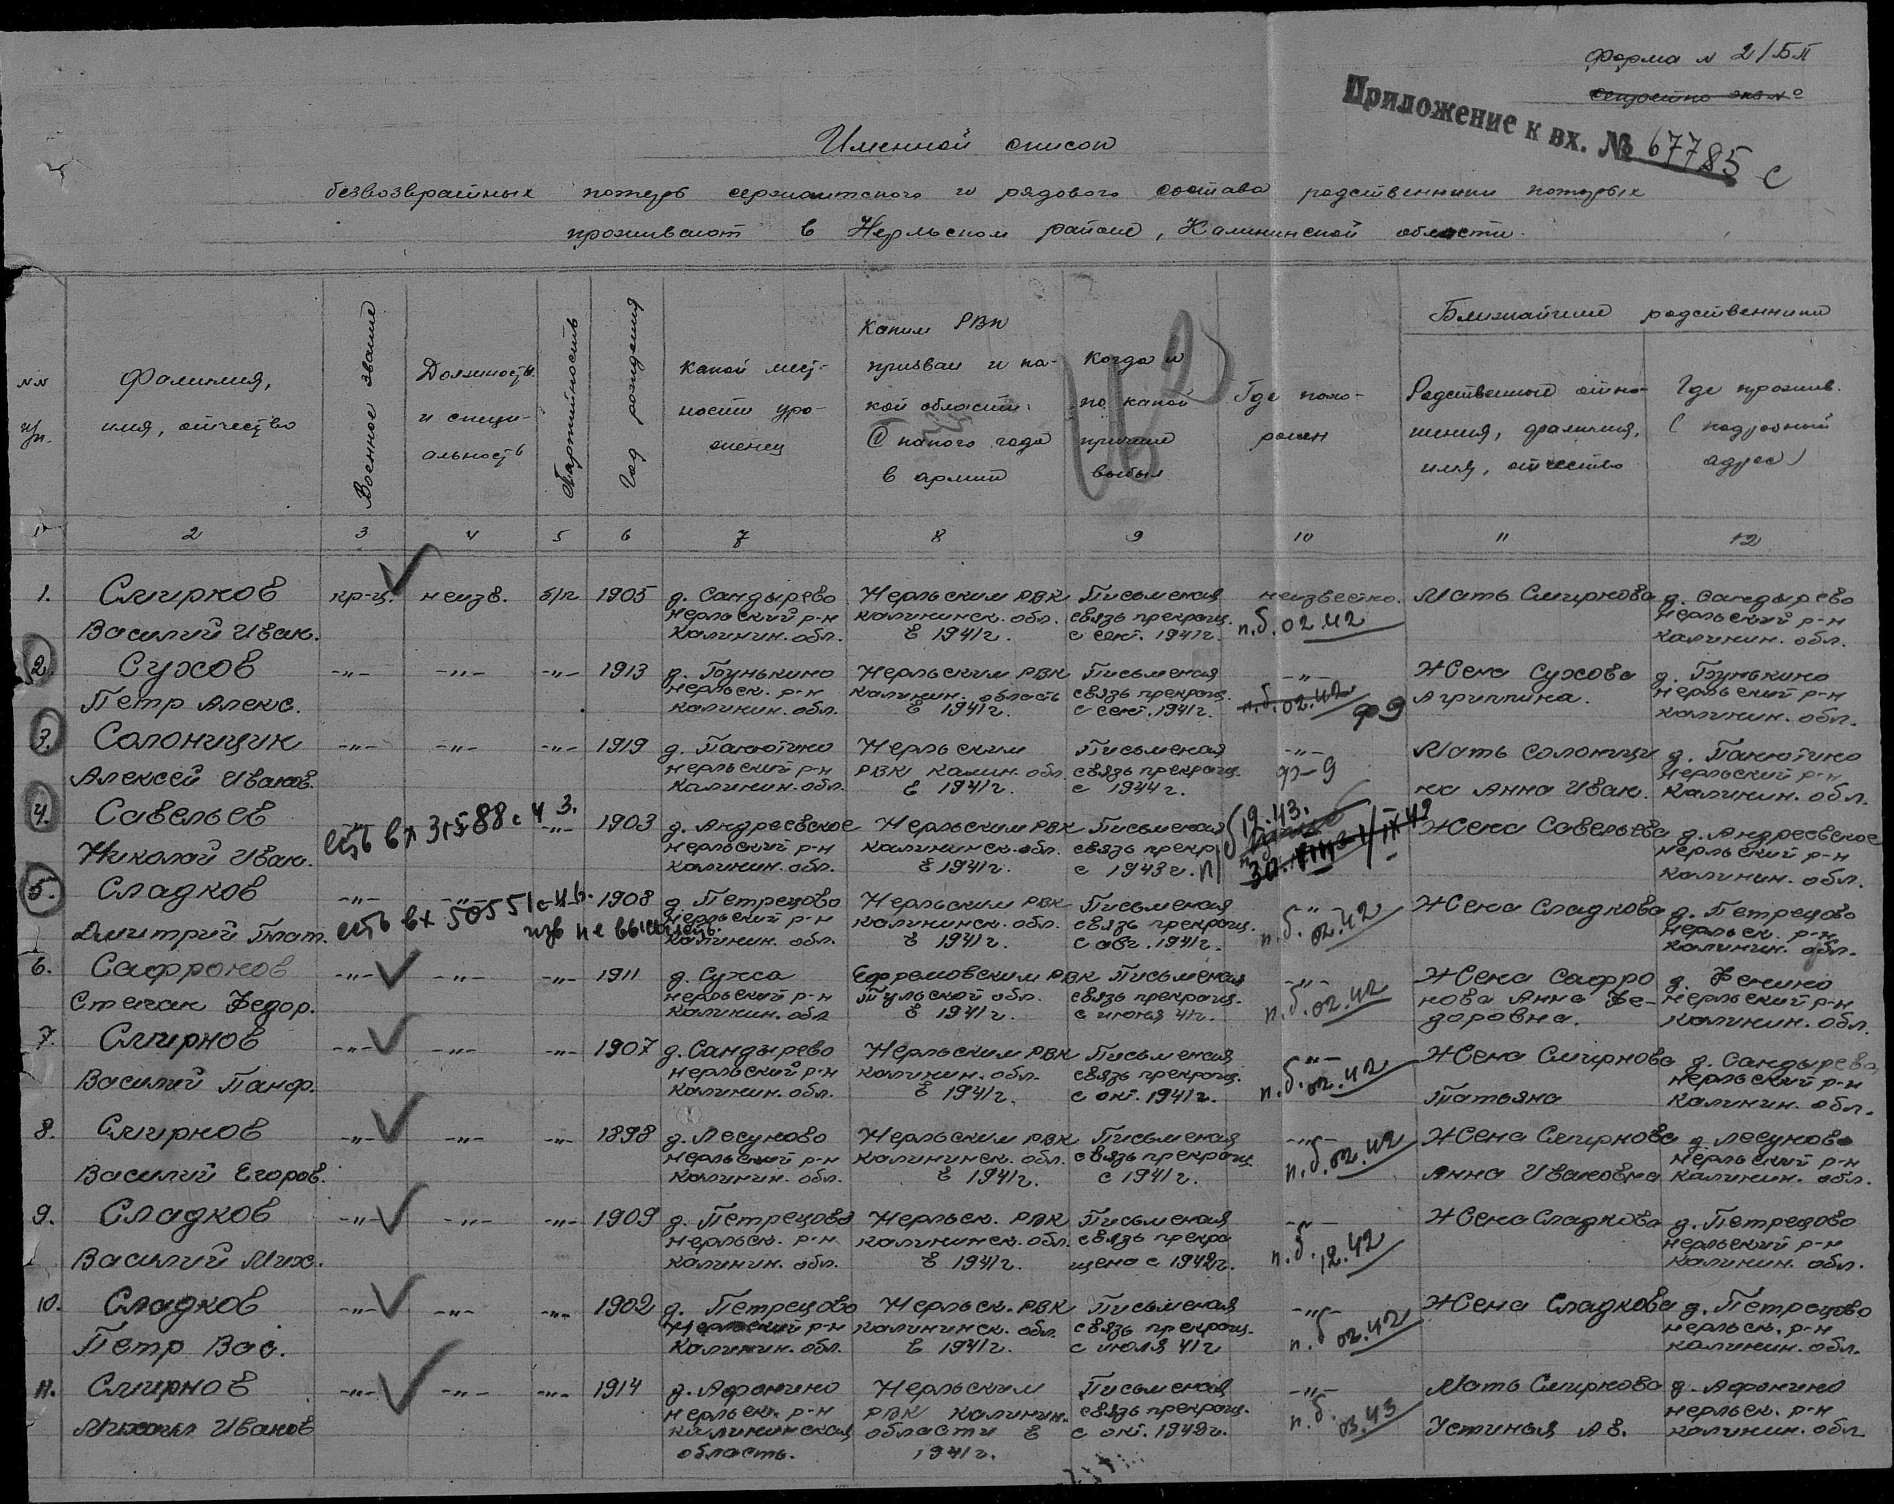 Форма № 2/БП
секретно экз №
Приложение к вх. № 67785 с
Именной список
безвозвратных потерь сержантского и рядового состава родственники которых
проживают в Нерльском районе, Калининской области.
№№ п/п.
Фамилия, имя, отчество
Военное звание
Должность и специальность
Партийность
Год рождения
Какой местности уроженец
Каким РВК призван и какой области. С какого года в армии
Когда и по какой причине выбыл
Где похоронен
Ближайшие родственники
Родственные отношения, фамилия, имя, отчество
Где прожив. (подробный адрес)
1 2 3 4 5 6 7 8 9 10 11 12
1. Смирнов кр-ц. неизв. б/п 1905 д. Сандырево Нерльским РВК Письменая неизвестно. Мать Смирнова д. Сандырево
Нерльский р-н калининск. обл. связь прекращ. Нерльский р-н
Василий Иван. Калинин. обл. в 1941 г. с сент. 1941 г. п.б. 02.42 калинин. обл.
2. Сухов -"- -"- -"- 1913 д. Бунькино Нерльским РВК Письменая -"- Жена Сухова д. Бунькино
нерльск. р-н калинин. область связь прекращ. нерльский р-н
Петр Алекс. калинин. обл. в 1941 г. с сент. 1941 г. п.б. 02.42 ф9 Агриппина. калинин. обл.
3. Солоницин -"- -"- -"- 1919 д. Панютино Нерльским Письменая -"- Мать Солоници д. Панютино
нерльский р-н РВК калин. обл. связь прекращ. нерльский р-н
Алексей Иванов. калинин. обл. в 1941 г. с 1944 г. ф-9 на Анна Иван. калинин. обл.
4. Савельев есть вх 31588с 43. -"- 1903 д. Андреевское Нерльским РВК Письменая 19.43. Жена Савельева д. Андреевское
нерльский р-н калининск. обл. связь прекр нерльский р-н
Николай Иван. калинин. обл. в 1941 г. с 1943 г. калинин. обл.
5. Сладков -"- -"- 1908 д. Петрецово Нерльским РВК Письменая -"- Жена Сладкова д. Петрецово
есть вх 50551с-46. нерльский р-н калининск. обл. связь прекращ. нерльск. р-н
Дмитрий Плат. изв не высылать. калинин. обл. в 1941 г. с авг. 1941 г. п.б. 02.42 калинин. обл.
6. Сафронов -"- -"- -"- 1911 д. Сужа Ефремовским РВК Письменая -"- Жена Сафро д. Фенино
нерльский р-н Тульской обл. связь прекращ. нова Анна Фе- нерльский р-н
Степан Федор. калинин. обл в 1941 г. с июня 41 г. п.б. 02.42 доровна. калинин. обл.
7. Смирнов -"- -"- -"- 1907 д. Сандырево Нерльским РВК Письменая -"- Жена Смирнова д. Сандырево
нерльский р-н калинин. обл. связь прекращ. нерльский р-н
Василий Панф. калинин. обл. в 1941 г. с окт. 1941 г. п.б. 02.42 Татьяна калинин. обл.
8. Смирнов -"- -"- -"- 1898 д. Лесуково Нерльским РВК Письменая -"- Жена Смирнова д. Лесуково
нерльский р-н калининск. обл. связь прекращ. нерльский р-н
Василий Егоров. калинин. обл. в 1941 г. с 1941 г. п.б. 02.42 Анна Ивановна калинин. обл.
9. Сладков -"- -"- -"- 1909 д. Петрецово Нерльск. РВК Письменая -"- Жена Сладкова д. Петрецово
нерльск. р-н калининск. обл. связь прекра нерльский р-н
Василий Мих. калинин. обл. в 1941 г. щена с 1942 г. п.б. 12.42 калинин. обл.
10. Сладков -"- -"- -"- 1902 д. Петрецово Нерльск. РВК Письменая -"- Жена Сладкова д. Петрецово
нерльский р-н калининск. обл. связь прекращ. нерльск. р-н
Петр Вас. Калинин. обл. в 1941 г. с июля 41 г п.б 02.42 калинин. обл.
11. Смирнов -"- -"- -"- 1914 д. Афонино Нерльским Письменая -"- Мать Смирнова д. Афонино
нерльск. р-н РВК калинин. связь прекращ. нерльск. р-н
Михаил Иванов калининская области в с окт. 1942 г. п.б. 03.43 Устинья Ав. калинин. обл
область. 1941 г.